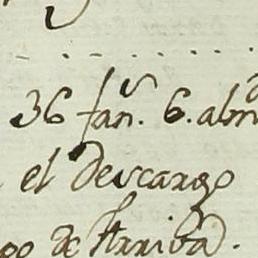 36 fan.s 6. alm
el Descargo
go de Arriba.